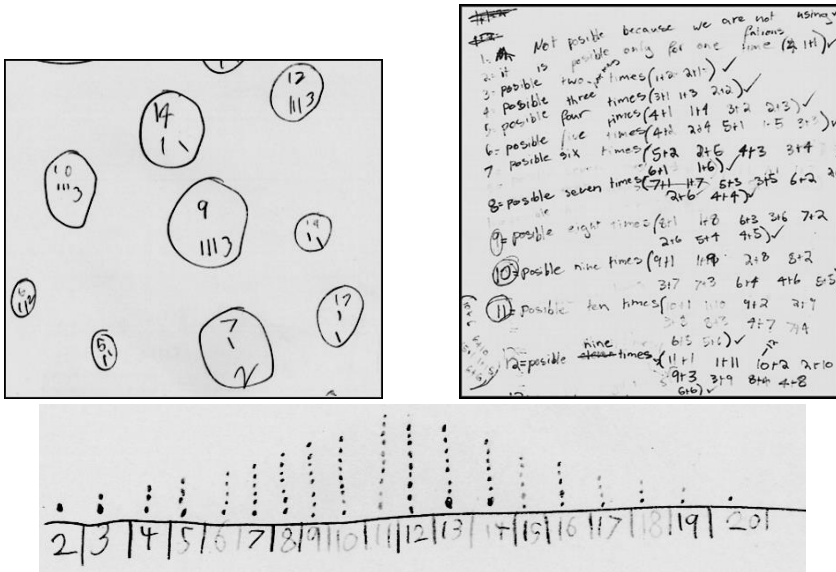 12
1113
14
1 \
10
1113
9
11113
7
1
2
5
12
1
1
1- Not posible because we are not using
2- it is posible only for one time (1+1)✓
3- posible two times (1+2 2+1)✓
4- posible three times (3+1 1+3 2+2)✓
5- posible four times (4+1 1+4 3+2 2+3)✓
6- posible five times (4+2 2+4 5+1 1+5 3+3)✓
7 posible six times (5+2 2+5 4+3 3+4
6+1 1+6)✓
8= possible seven times (7+1 1+7 5+3 3+5 6+2
2+6 4+4)✓
9= posible eight times (8+1 1+8 6+3 3+6 7+2
2+6 5+4 4+5)✓
10= posible nine times (9+1 1+9 2+8 8+2
3+7 7+3 6+4 4+6 5+5
11= possible ten times (10+1 1+10 9+2 2+9
3+8 8+3 4+7 7+4
6+5 5+6)✓
nine
12=posible times (11+1 1+11 10+2 2+10
9+3 3+9 8+4 4+8
6+6)✓
2 | 3 | 4 | 5 | 6 | 7 | 8 | 9 | 10 | 11 | 12 | 13 | 14 | 15 | 16 | 17 | 18 | 19 | 20 |